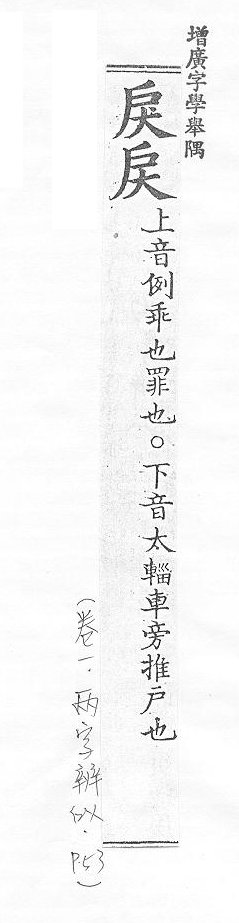 增廣字學舉隅
戾戻
上音例乖也罪也○下音太輜車旁推戶也
(卷一.兩字辨似.P.53)